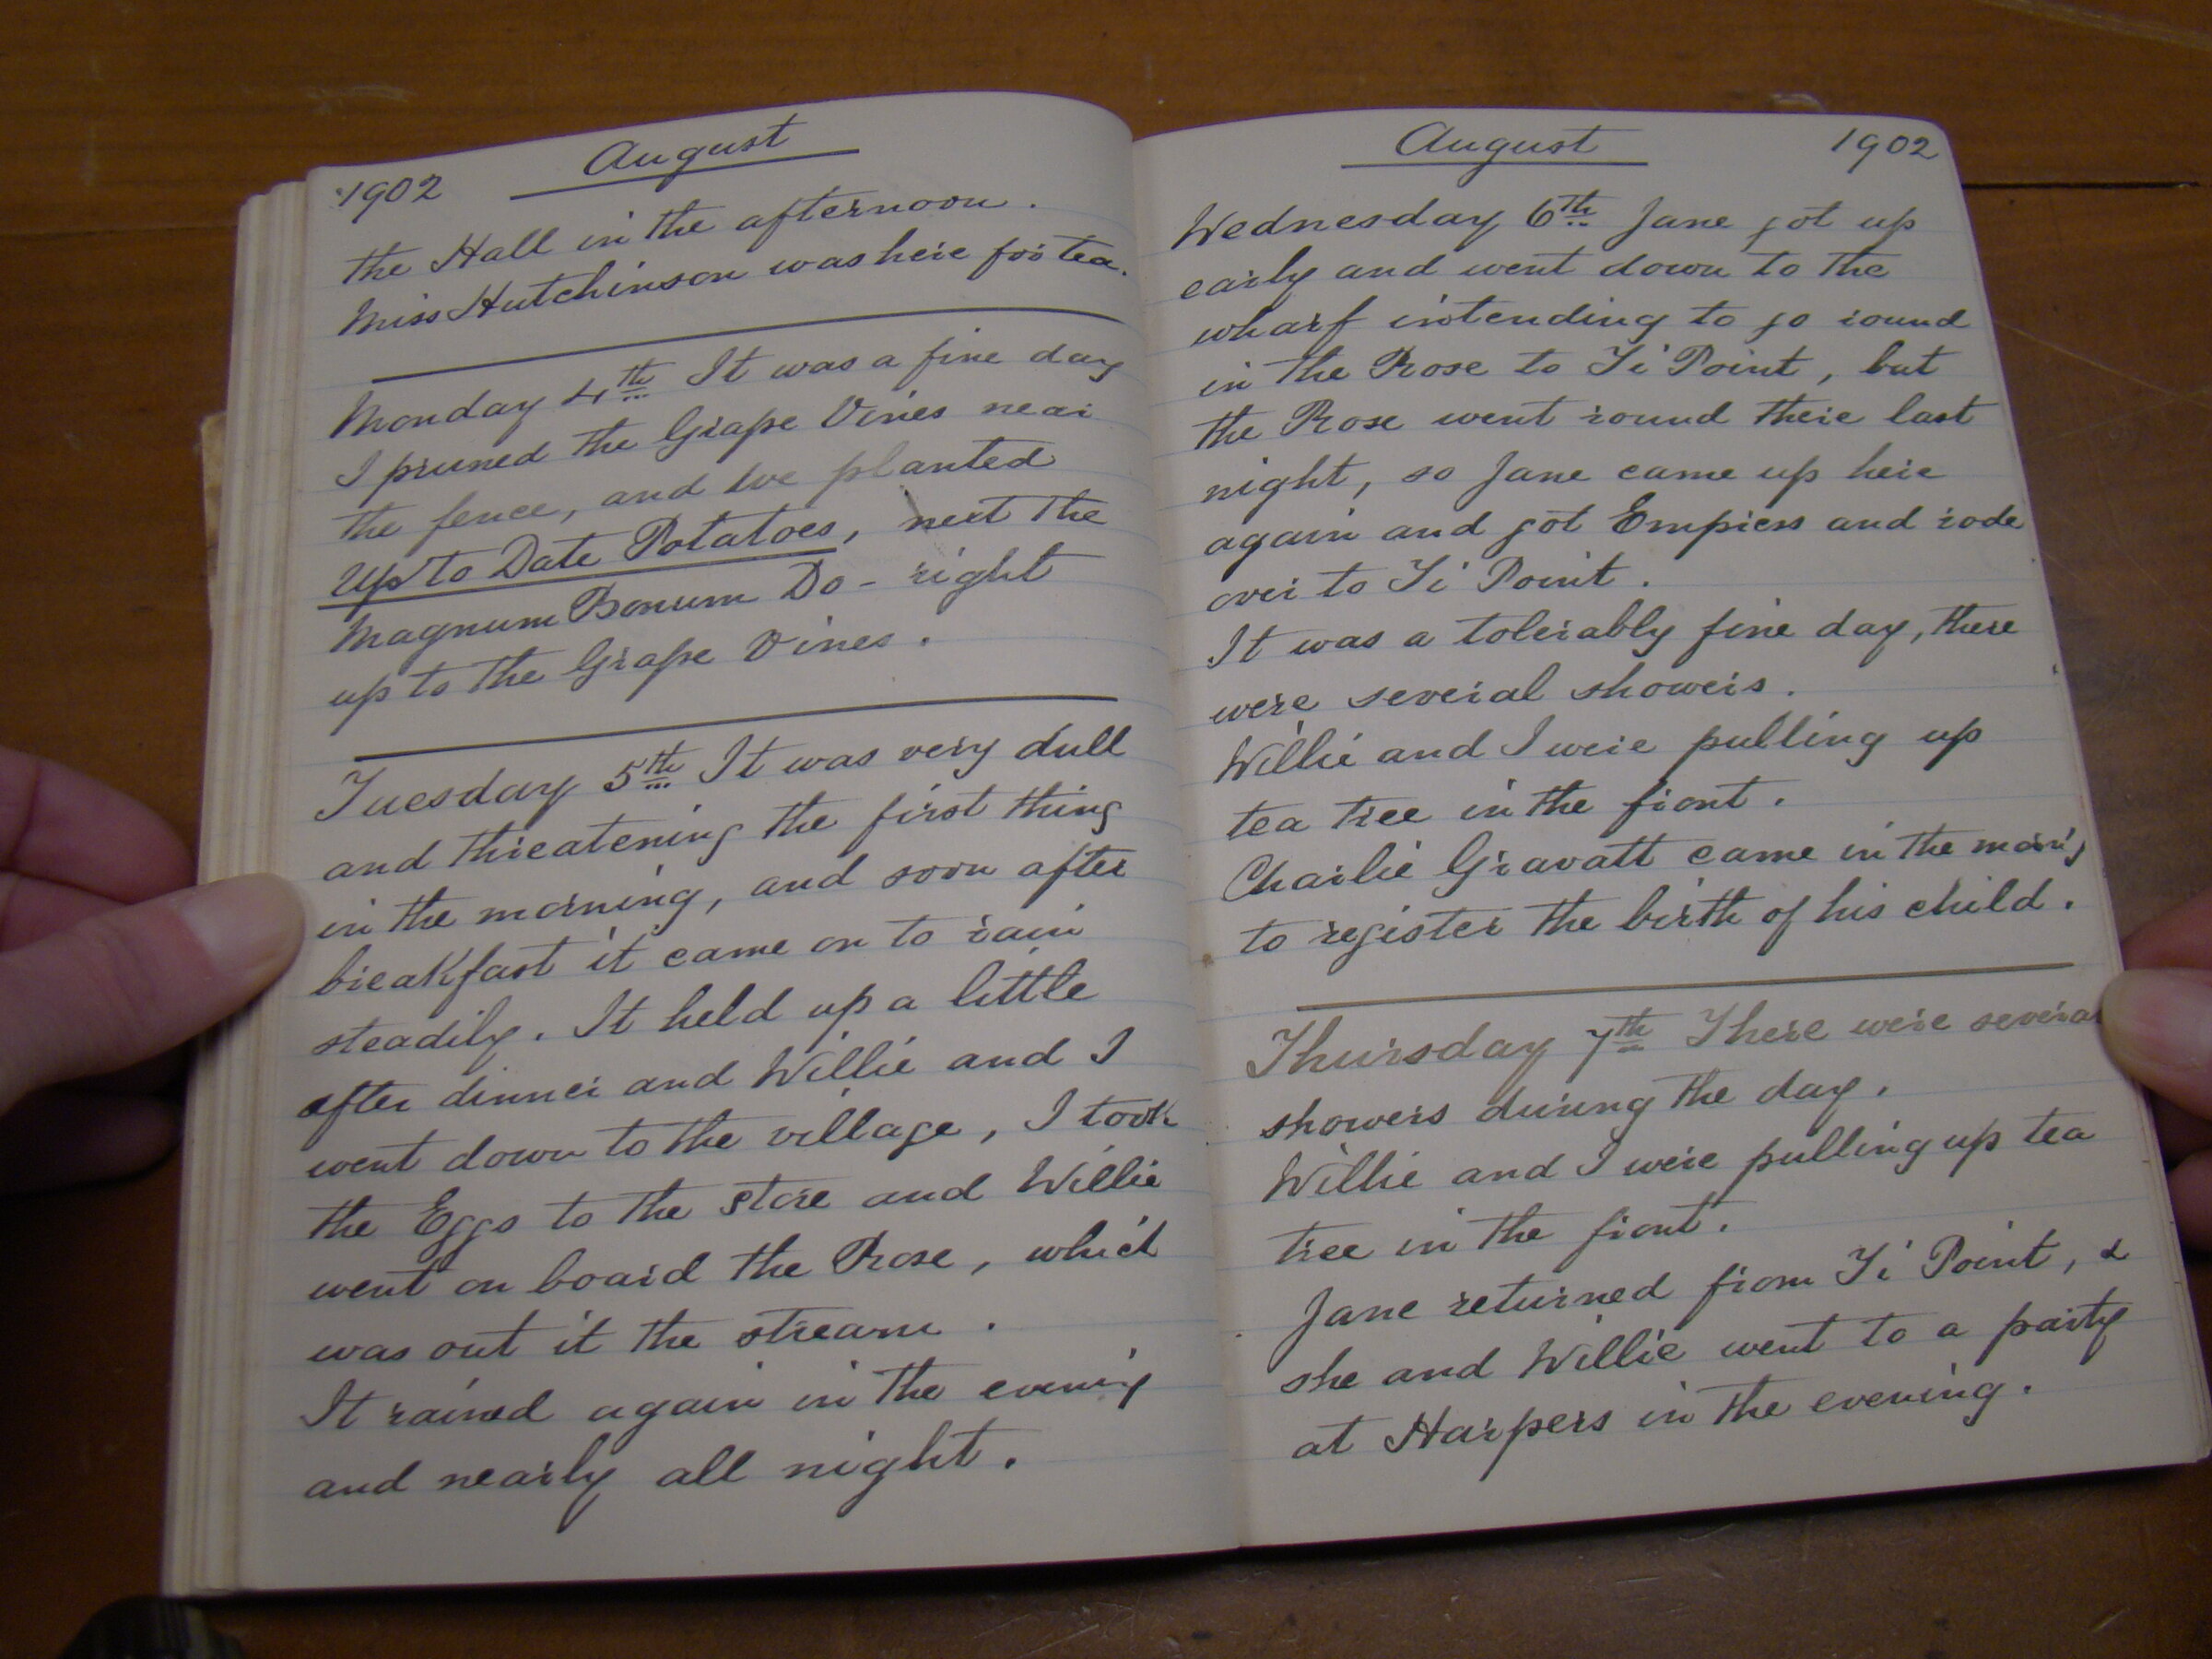 August
1902
the Hall in the afternoon.
Miss Hutchinson was here for tea.
Monday 4th It was a fine day
I pruned the Grape Vines near
the fence, and we planted
Up to Date Potatoes, next the
Magnum Bonum Do - right
up to the Grape Vines.
Tuesday 5th It was very dull
and threatening the first thing
in the morning, and soon after
breakfast it came on to rain
steadily. It held up a little
after dinner and Willie and I
went down to the village, I took
the Eggs to the store and Willie
went on board the Rose, which
was out it the stream.
It rained again in the evening
and nearly all night.
August 1902
Wednesday 6th Jane got up
early and went down to the
wharf intending to go round
in the Rose to Ti Point, but
the Rose went round there last
night, so Jane came up here
again and got Empress and rode
over to Ti Point.
It was a tolerably fine day, there
were several showers.
Willie and I were pulling up
tea tree in the front.
Charlie Gravatt came in the morng
to register the birth of his child.
Thursday 7th There were several
showers during the day.
Willie and I were pulling up tea
tree in the front.
Jane returned from Ti Point, &
she and Willie went to a party
at Harpers in the evening.